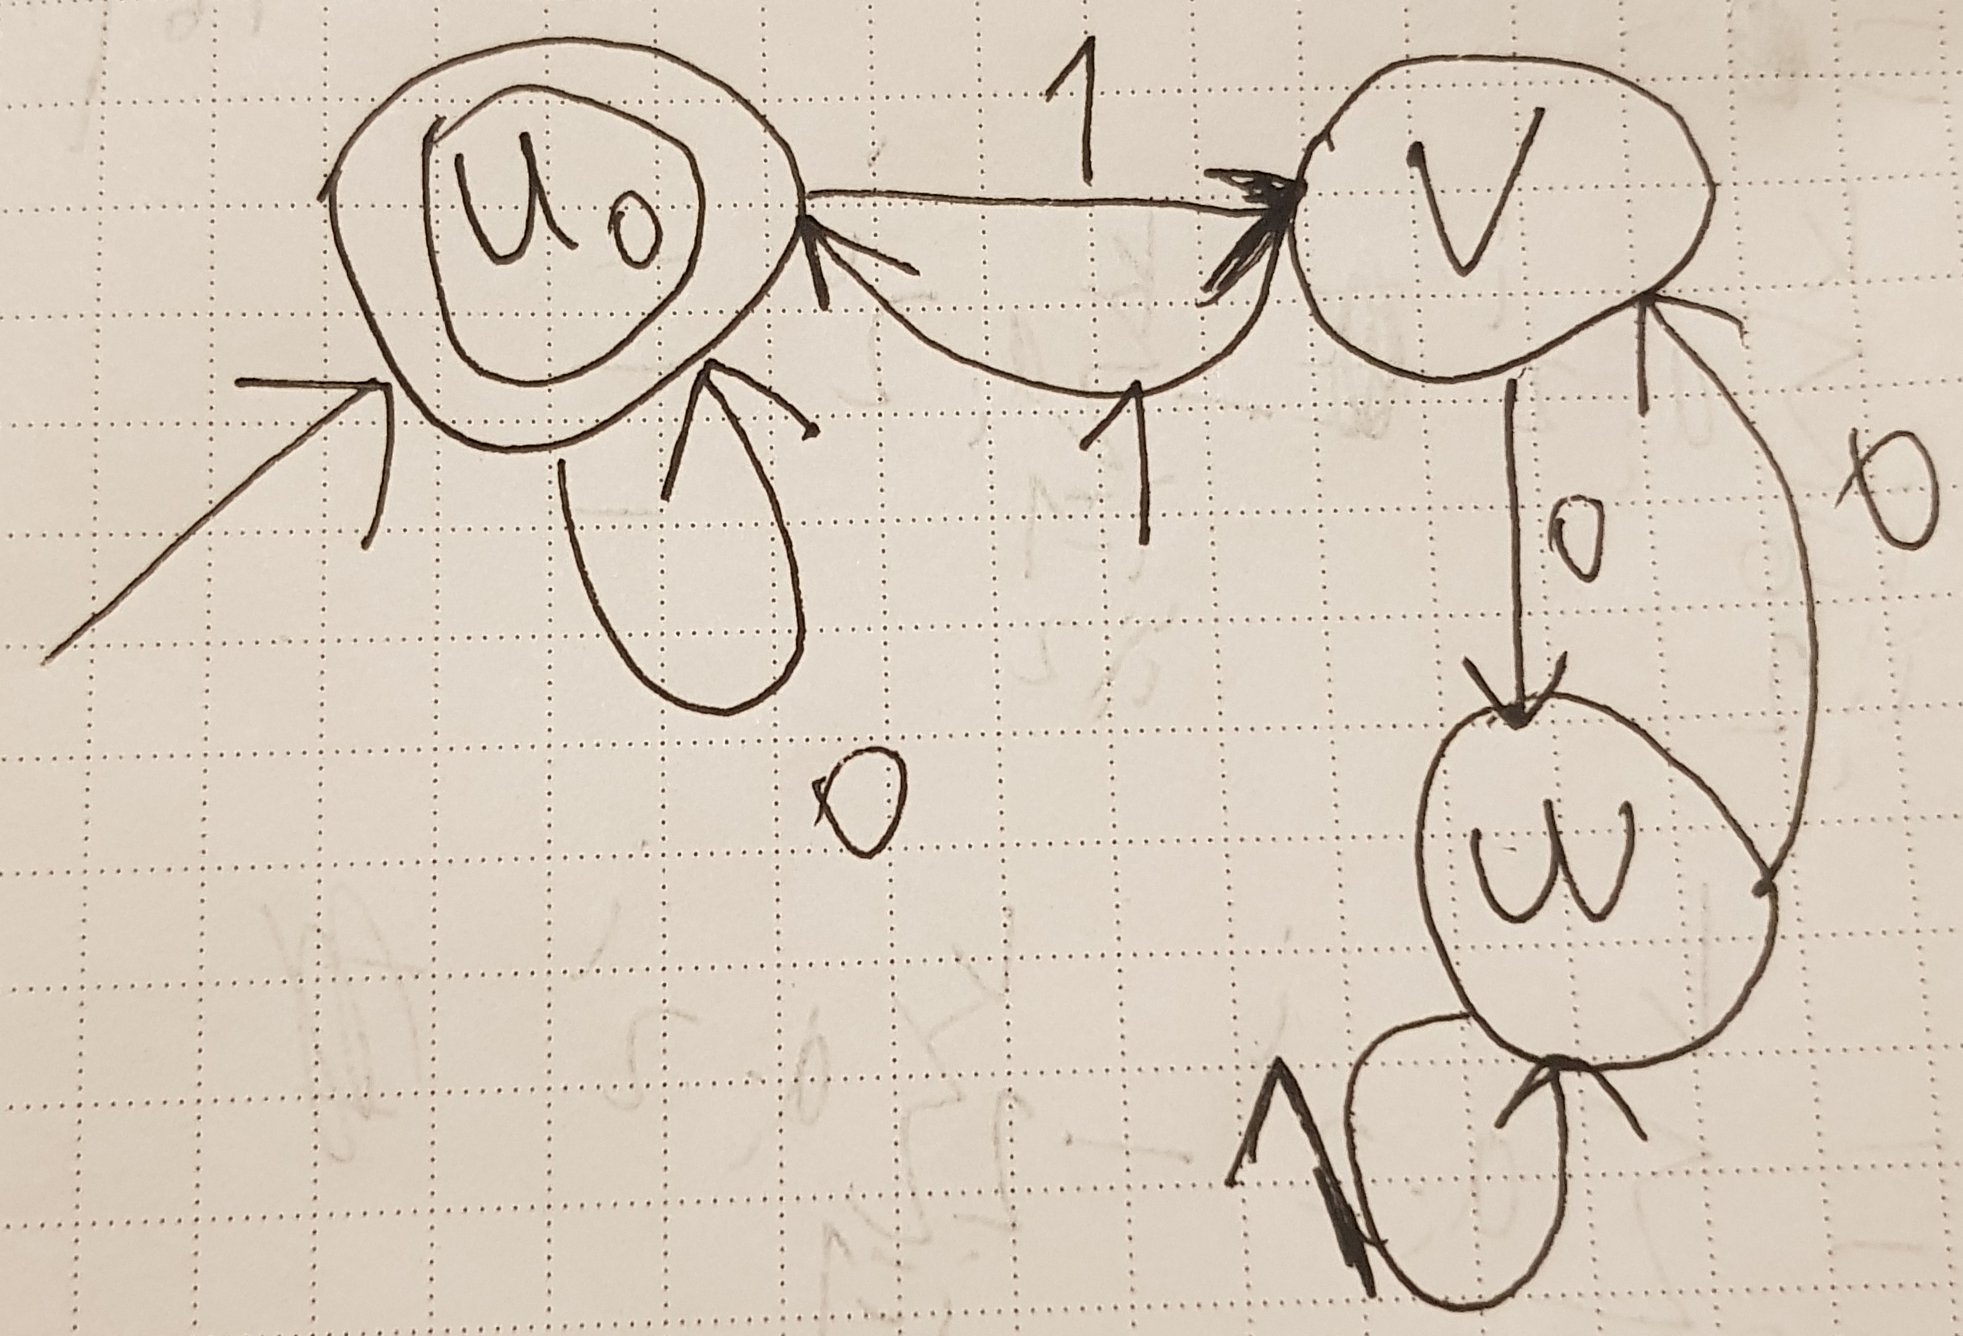 1
u₀ V
1
0 0
0
w
1